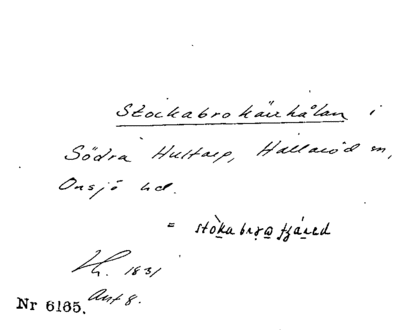 Stockabrokärrhålan i
Södra Hultarp, Hallaröd sn,
Onsjö hd.
= stòka brꝍ fjáred
Lh. 1831
Ant 8.
Nr 6165.